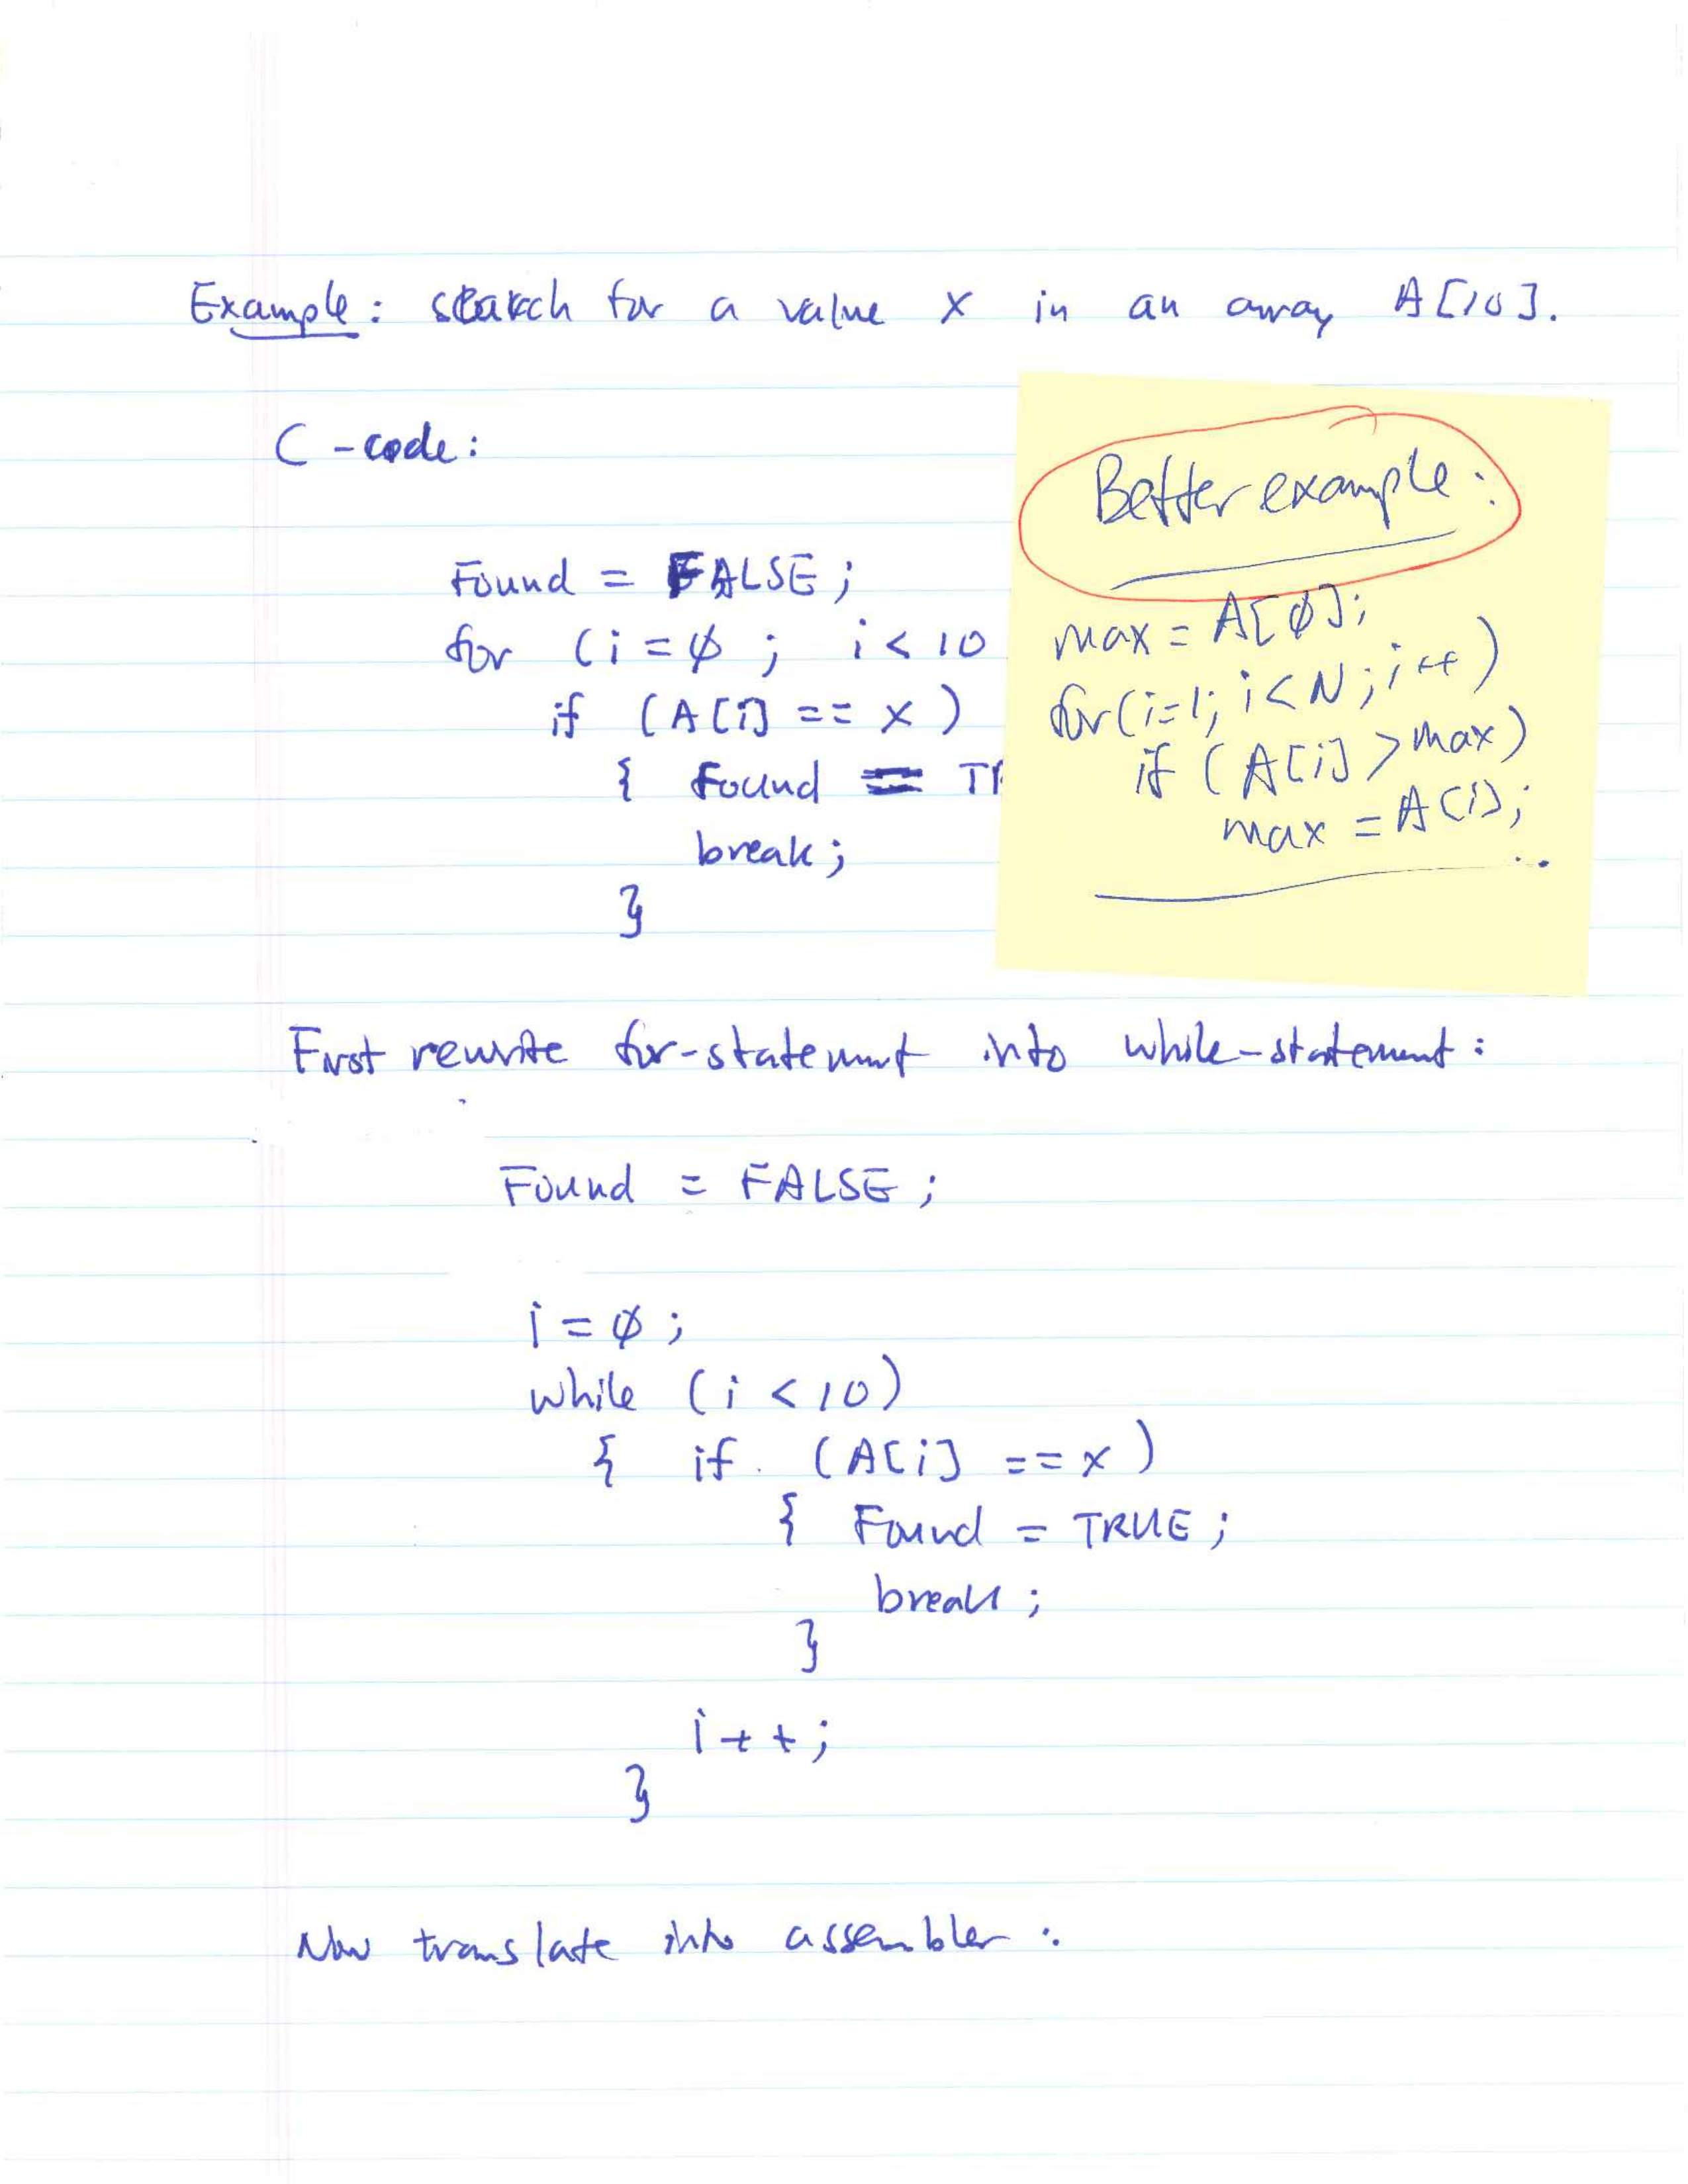 Example: search for a value x in an array A[10].
C-code:
Found = FALSE;
for (i=0; i<10
if (A[i] == x)
{ Found = TR
break;
}
Better example:
max = A[0];
for(i=1; i<N; i++)
if (A[i] > max)
max = A[i];
First rewrite for-statement into while-statement:
Found = FALSE;
i=0;
while (i<10)
{ if (A[i] ==x)
{ Found = TRUE;
break;
}
i++;
}
Now translate into assembler: